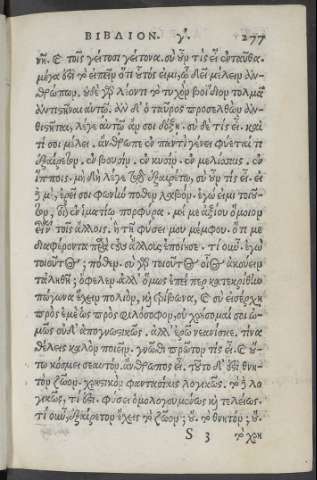 ΒΙΒΛΙΟΝ γ΄. 277
νῃ. καὶ τοῖς γείτοσι γείτονα. σὺ οὖν τίς εἶ; ἐνταῦθα
μέγα ἐστὶ τὸ εἰπεῖν ὅτι οὗτός εἰμι, ᾧ δεῖ μέλειν ἀν-
θρώπων. οὐδὲ γὰρ λέοντι τὸ τυχὸν βοίδιον τολμᾷ
ἀντιστῆναι αὐτῷ. ἂν δ' ὁ ταῦρος προσελθὼν ἀν-
θίστηται, λέγε αὐτῷ ἄν σοι δόξῃ. σὺ δὲ τίς εἶ. καὶ
τί σοι μέλει. ἄνθρωπε ἐν παντὶ γένει φύεταί τι
ἐξαίρετον. ἐν βουσὶν, ἐν κυσὶν. ἐν μελίσσαις. ἐν
ἵπποις. μὴ δὴ λέγε τῷ ἐξαιρέτῳ, σὺ οὖν τίς εἶ. εἰ
δὲ μὴ, ἐρεῖ σοι φωνὴν ποθεν λαβὸν. ἐγώ εἰμι τοιοῦ-
τον, οἷον ἐν ἱματίῳ πορφύρα. μή με ἀξίου ὅμοιον
εἶναι τοῖς ἄλλοις. ἢ τῇ φύσει μου μέμφου. ὅτι με
διαφέροντα παρὰ τοὺς ἄλλους ἐποίησε. τί οὖν. ἐγὼ
τοιοῦτος; πόθεν. σὺ γὰρ τοιοῦτος οἷος ἀκούειν
τἀληθῆ; ὤφελεν ἀλλ' ὅμως ἐπεί περ κατεκρίθην
πώγωνα ἔχειν πολιὸν, καὶ τρίβωνα, καὶ σὺ εἰσέρχῃ
πρὸς ἐμὲ ὡς πρὸς φιλόσοφον, οὐ χρήσομαί σοι ὠ-
μῶς οὐδ' ἀπογνωστικῶς. ἀλλ' ἐρῶ νεανίσκε. τίνα
θέλεις καλὸν ποιεῖν. γνῶθι πρῶτον τίς εἶ. καὶ οὕ-
τω κόσμει σεαυτὸν. ἄνθρωπος εἶ. τοῦτο δ' ἐστὶ θνη-
τὸν ζῶον. χρηστικὸν φαντασίαις λογικῶς. τὸ δὲ λο-
γικῶς, τί ἐστι. φύσει ὁμολογουμένως καὶ τελείως.
τί οὖν, ἐξαίρετον ἔχεις τὸ ζῶον; οὔ. τὸ θνητόν; οὔ.
S 3 τὸ χρη